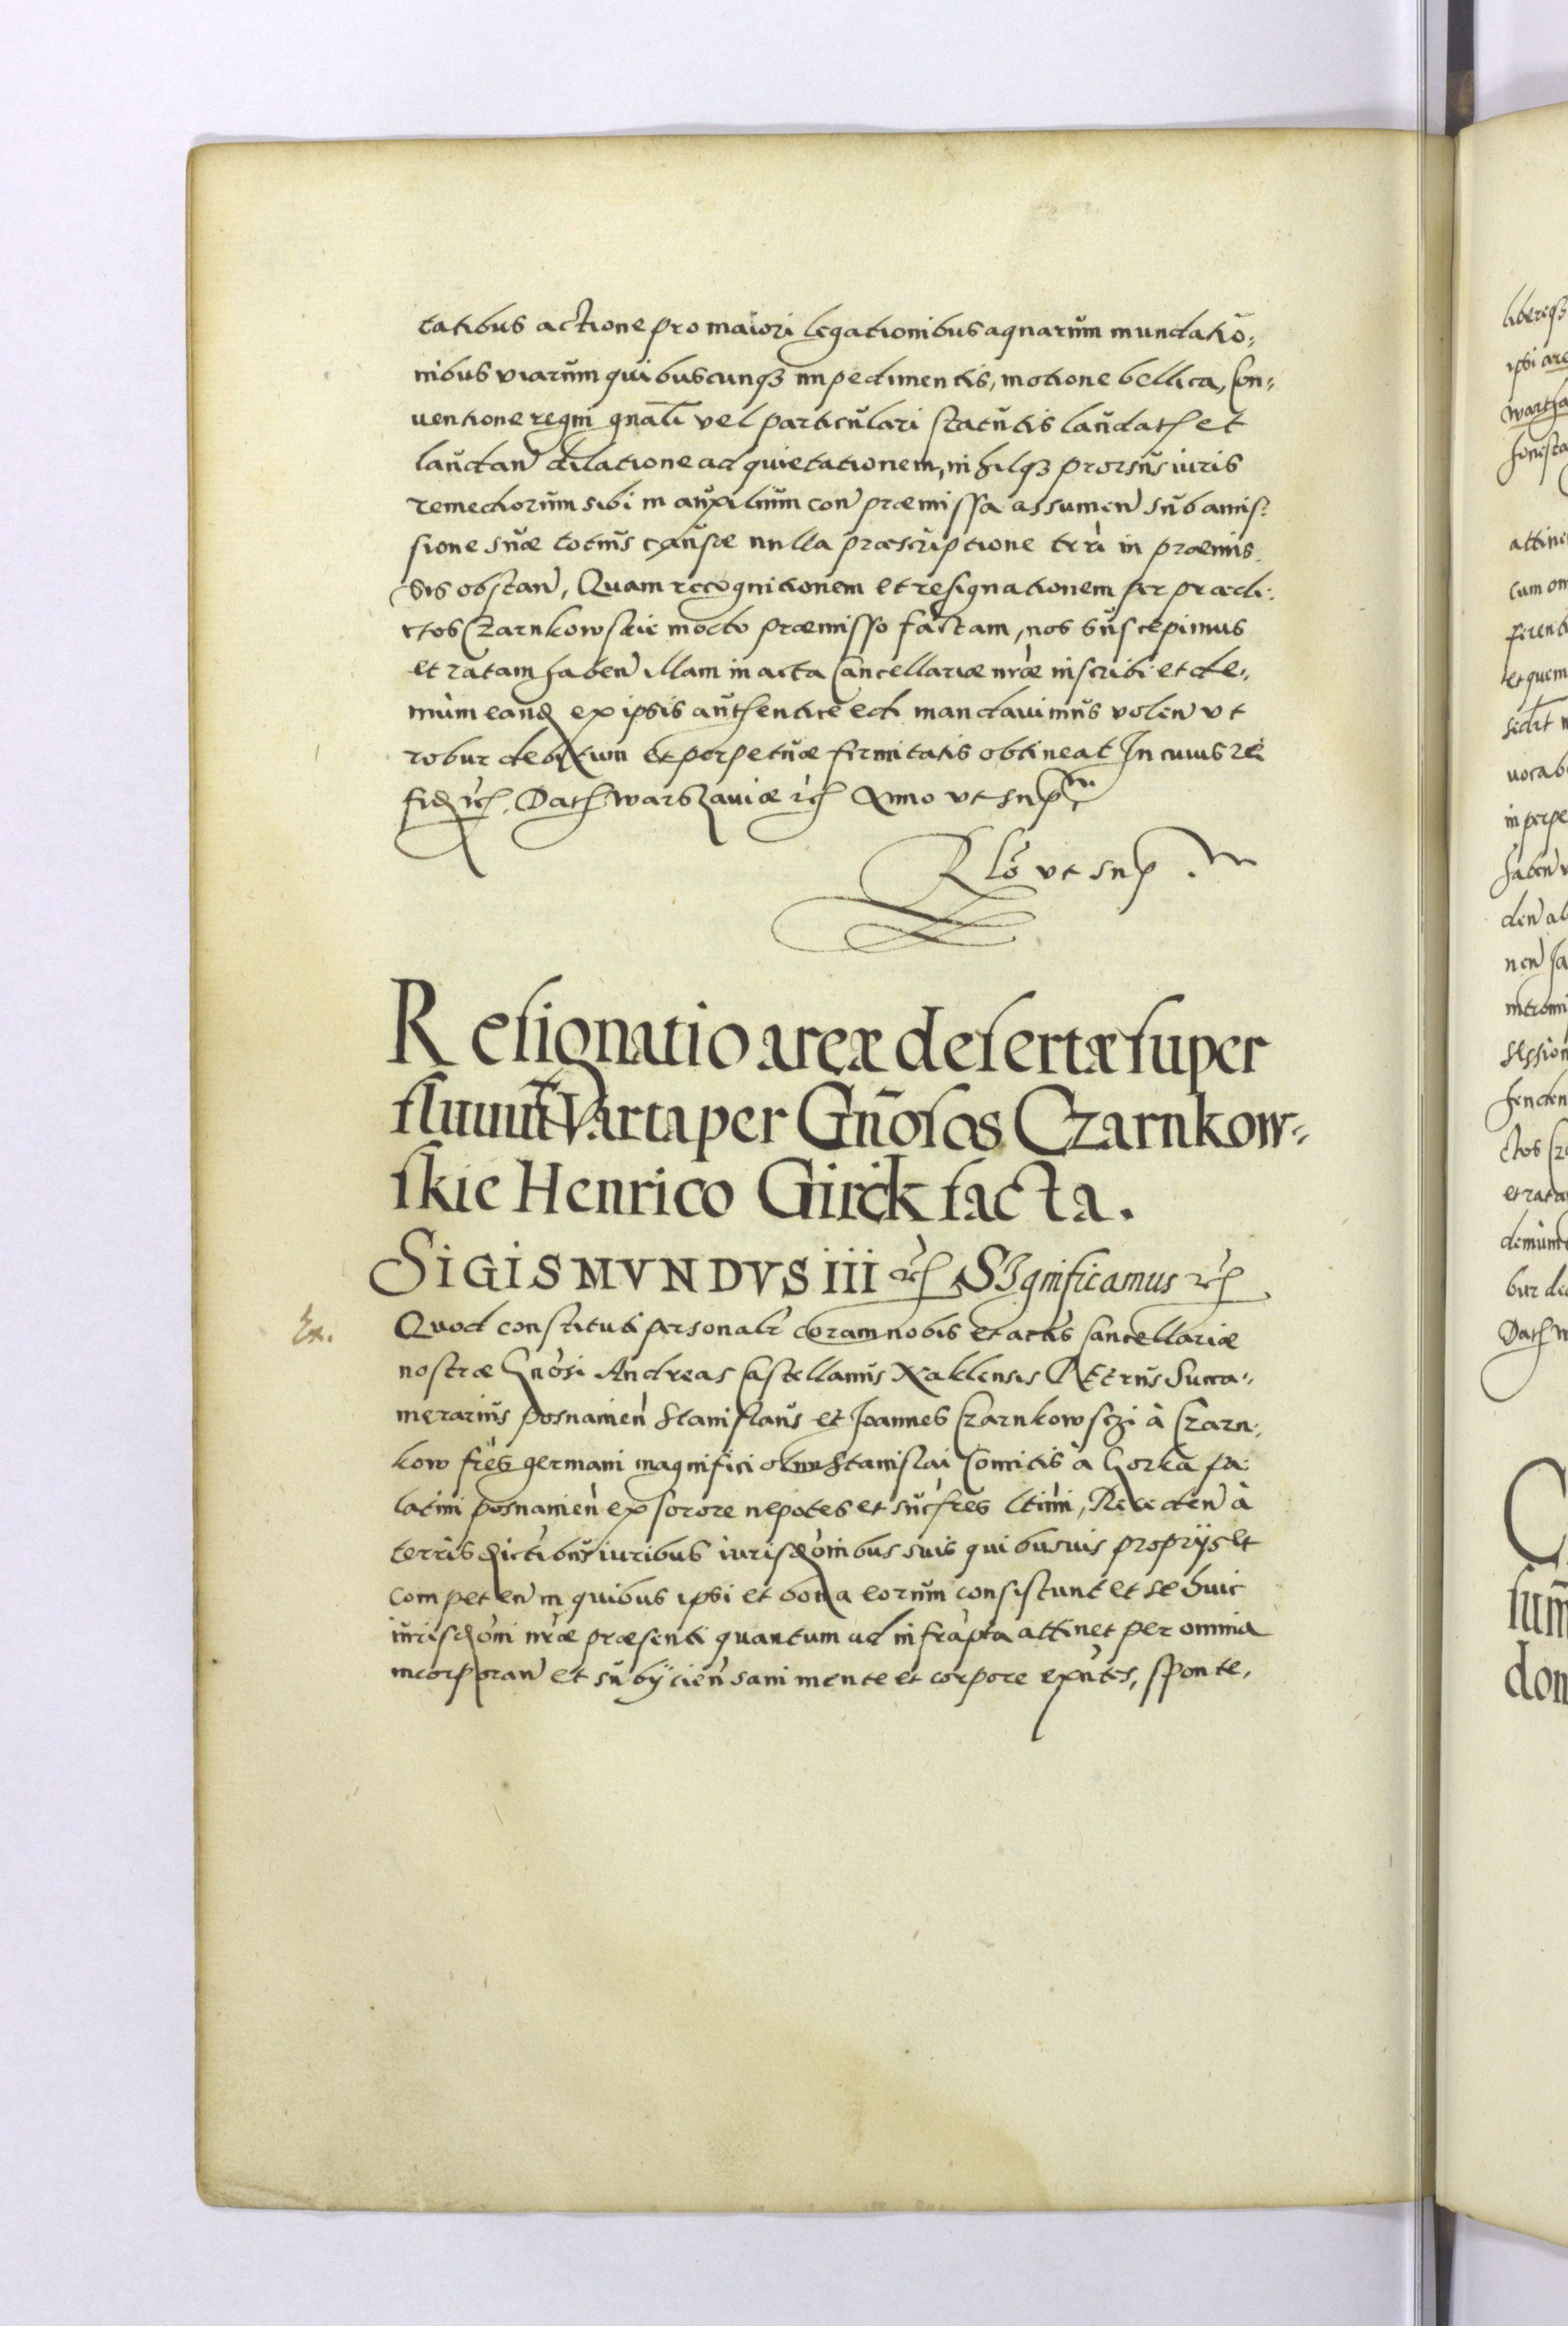 tatibus actione pro maiori legationibus aquarum inundatio:
nibus viarum quibuscunq3 impedimentis, motione bellica, Con:
uentione regni gnāli vel particulari statutis laudatis et
laudan dilatione ad quietationem, nihilq3 prorsus iuris
remediorum sibi in auxilium con præmissa assumen sub amis:
sione suæ totius causæ nulla præscriptione trri in præmis
sis obstan, Quam recognitionem et resignationem per prædi:
ctos Czarnkowskie modo præmisso factam, nos suscepimus
et ratam haben illam in acta Cancellariæ nræ inscribi et de:
mum eand ex ipsis authentice edi mandauimus volen vt
robur debitum et perpetuæ firmitatis obtineat In cuius rei
fid rc̄. Dat Warszauiæ rc̄ Anno vt sup
Rlo vt sup.
Resignatio areæ desertæ super
fluuiū Varta per Gn̄osos Czarnkow:
skie Henrico Girck facta.
SIGISMVNDVS III rc̄ Significamus rc̄
Ex.
Quod constituti personalr coram nobis et actis Cancellariæ
nostræ Gnosi Andreas Castellanus Naklensis Petrus Succa:
merarius posnanien Stanislaus et Joannes Czarnkowsczi à Czarn:
kow fres germani magnifici olim Stanislai Comitis à Gorka pa
latini posnanien ex sorore nepotes et sucfres ltimi, Receden à
terris dictibus iuribus iurisdonibus suis quibusuis proprijs et
competen in quibus ipsi et bona eorum consistunt et se huic
iurisdoni nræ præsenti quantum ad infrapta attinet per omnia
incorporan et subijcien sani mente et corpore exntes, sponte,